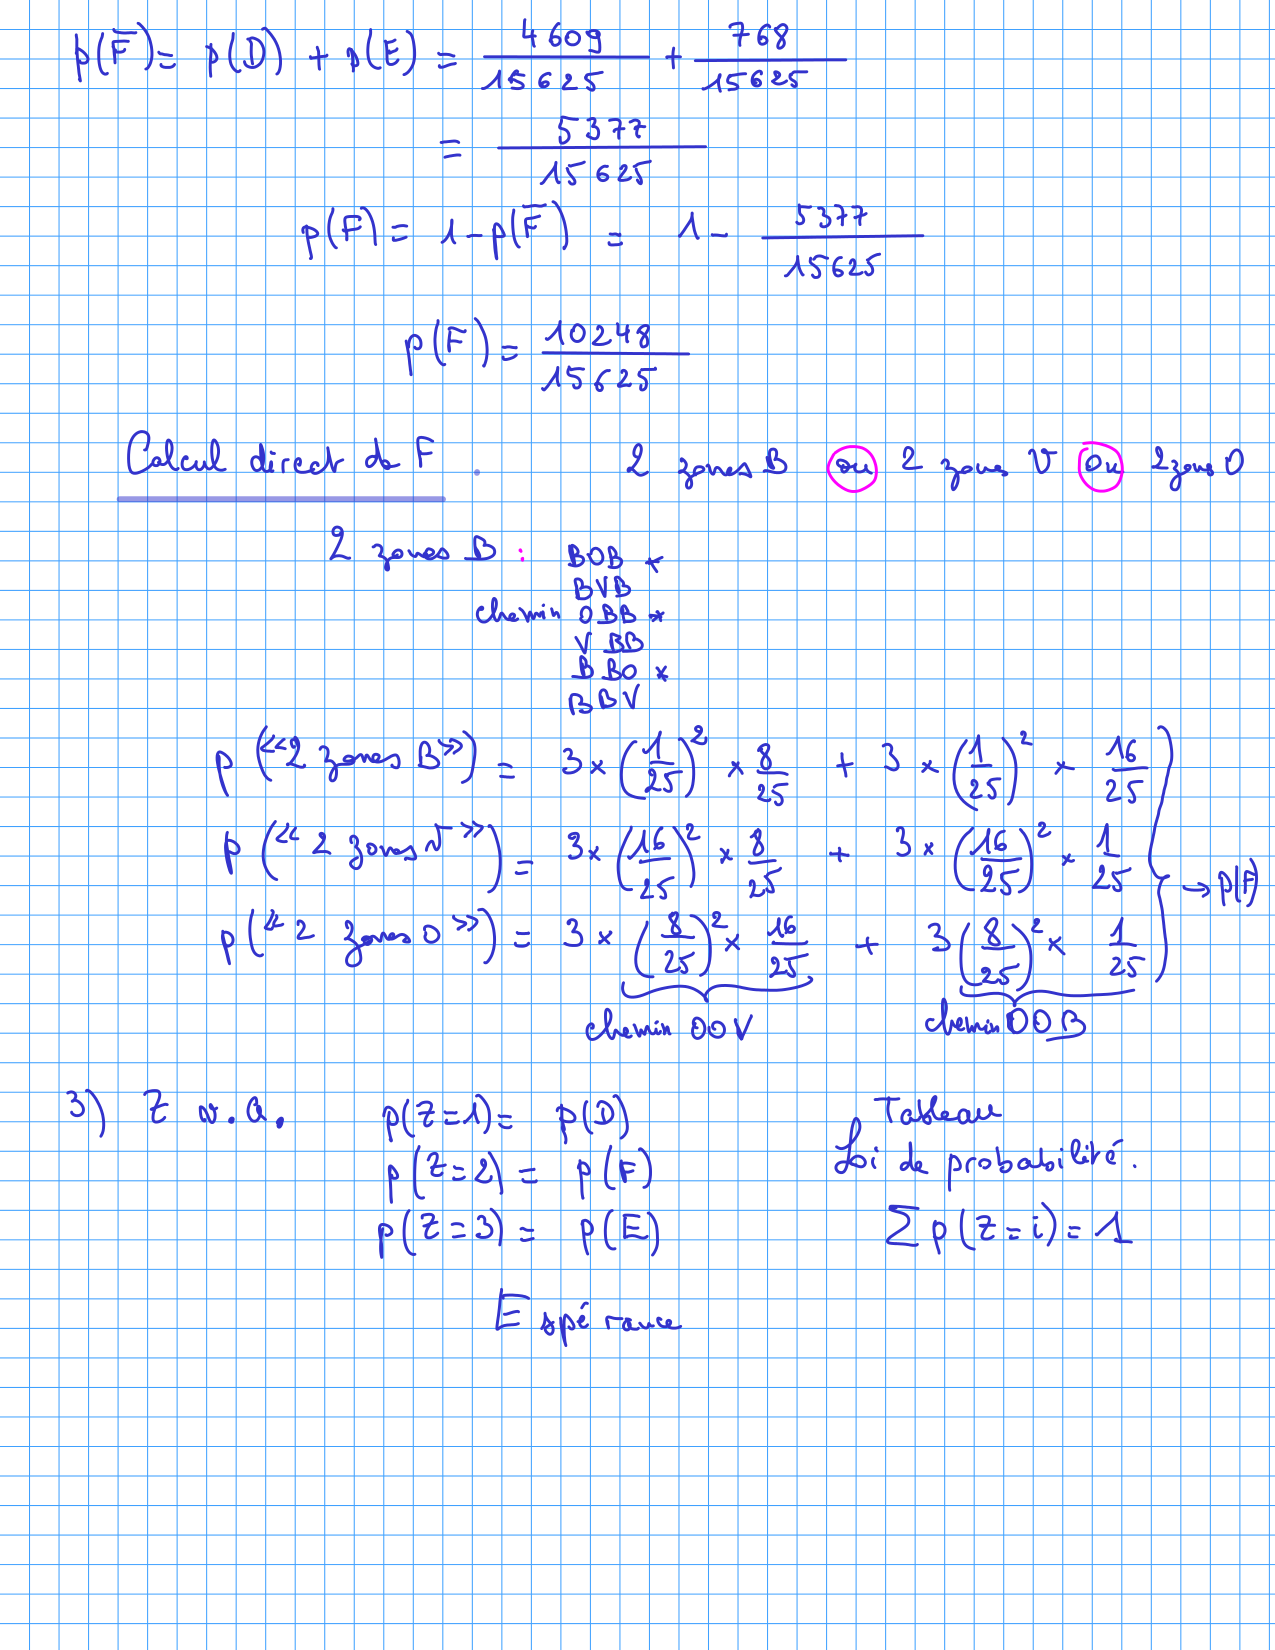 p(F̅) = p(D) + p(E) = 4609/15625 + 768/15625
= 5377/15625
p(F) = 1 - p(F̅) = 1 - 5377/15625
p(F) = 10248/15625
Calcul direct de F. 2 zones B ou 2 zones V ou 2 zones O
2 zones B : BOB *
BVB
chemin OBB *
VBB
BBO *
BBV
p(«2 zones B») = 3 × (1/25)² × 8/25 + 3 × (1/25)² × 16/25
p(«2 zones V») = 3 × (16/25)² × 8/25 + 3 × (16/25)² × 1/25 → p(F)
p(«2 zones O») = 3 × (8/25)² × 16/25 + 3 (8/25)² × 1/25
chemin OOV chemin OOB
3) Z v.a. p(Z=1) = p(D) Tableau
p(Z=2) = p(F) Loi de probabilité.
p(Z=3) = p(E) ∑ p(Z=i) = 1
Espérance